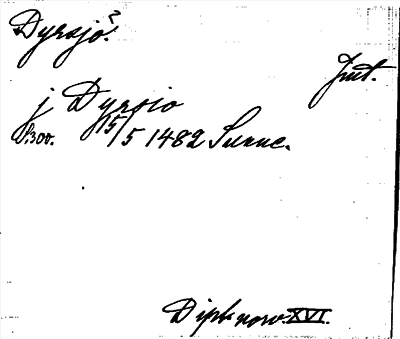 Dyrsjö?
Jmt.
j Dyrsio
S.300. 15/5 1482 Sunne.
Dipl. norv. XVI.